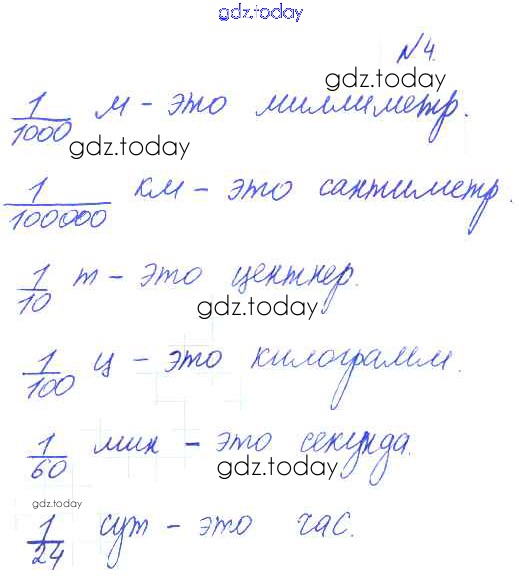 gdz.today
№4.
gdz.today
1/1000 м - это миллиметр.
gdz.today
1/100000 км - это сантиметр.
1/10 т - это центнер.
gdz.today
1/100 ц - это килограмм.
1/60 мин - это секунда.
gdz.today
gdz.today
1/24 сут - это час.